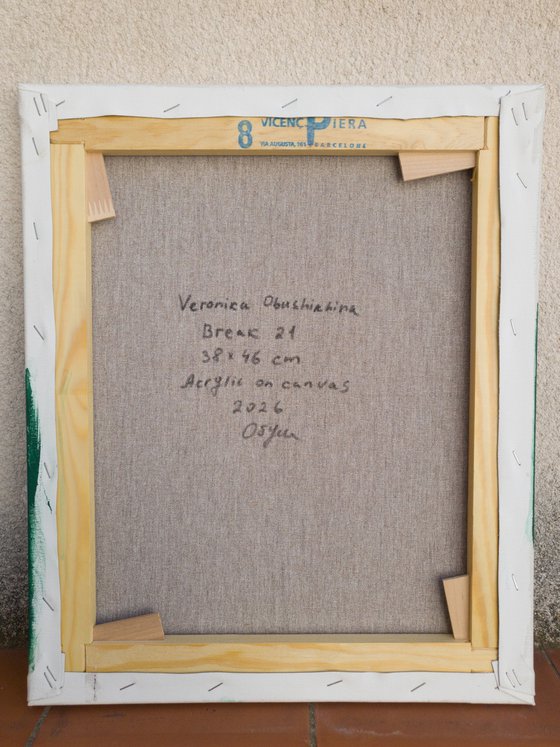 8 VICENÇ PIERA
VIA AUGUSTA, 165 BARCELONE
Veronika Obushinhina
Break 21
38 x 46 cm
Acrylic on canvas
2026